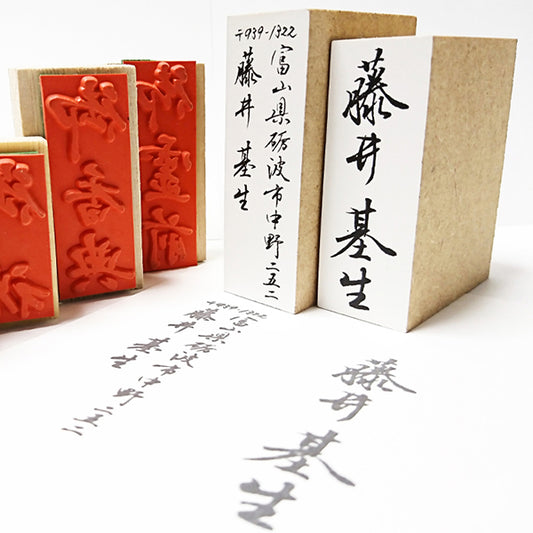 〒939-1322
富山県砺波市中野二五二
藤井基生
藤井基生
御霊前
御香典
〒939-1322
富山県砺波市中野二五二
藤井基生
藤井基生